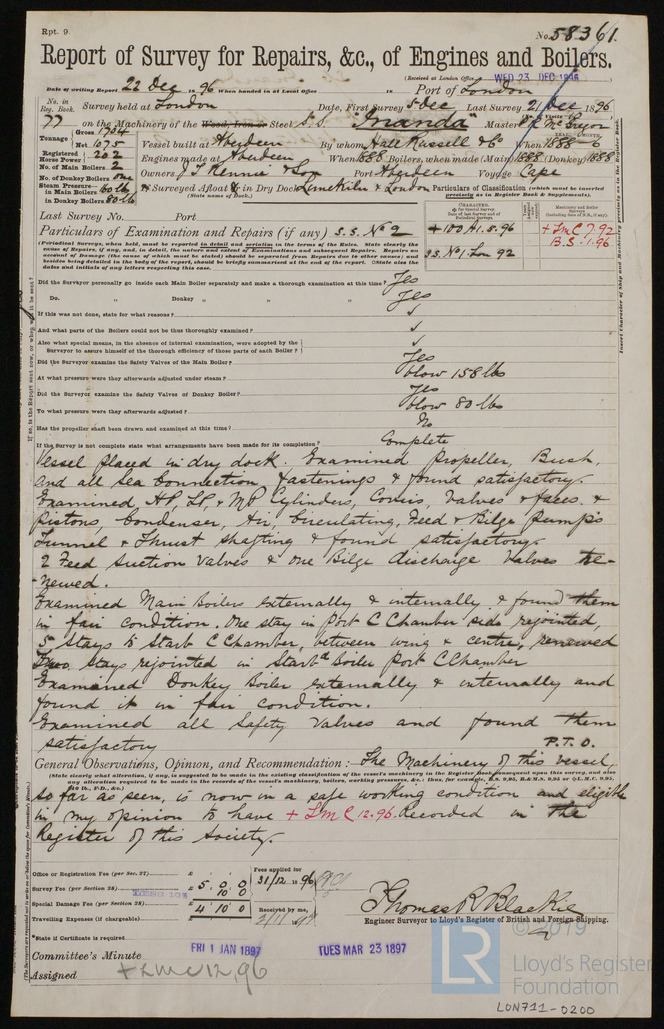 Rpt. 9.
No. 58361.
Report of Survey for Repairs, &c., of Engines and Boilers.
(Received at London Office WED 23 DEC 1896
Date of writing Report 22 Dec 1896 When handed in at Local Office 18 Port of London
No. in Reg. Book. Survey held at London Date, First Survey 5 Dec Last Survey 21 Dec 1896
77 on the Machinery of the Wood, Iron or Steel S.S. "Inanda" Master R McGregor
Tonnage Gross 1704 Net 1075
Vessel built at Aberdeen By whom Hall Russell & Co When 1888 - 6
Registered Horse Power 202
Engines made at Aberdeen When 1888 Boilers, when made (Main) 1888 (Donkey) 1888
No. of Main Boilers 2
No. of Donkey Boilers one
Owners J T Rennie & Son Port Aberdeen Voyage Cape
Steam Pressure— in Main Boilers 160 lb
in Donkey Boilers 80 lb
Surveyed Afloat & in Dry Dock Limekiln & London
(State name of Dock.)
Particulars of Classification (which must be inserted precisely as in Register Book & Supplements).
Last Survey No. Port
Particulars of Examination and Repairs (if any) S.S. No 2
+ 100 A1. 5.96
S.S. No 1. Lon 92
+ LMC 7.92
B.S. 1.96
(Periodical Surveys, when held, must be reported in detail and seriatim in the terms of the Rules. State clearly the cause of Repairs, if any, and, in detail, the nature and extent of Examinations and subsequent Repairs. Repairs on account of Damage (the cause of which must be stated) should be separated from Repairs due to other causes; and besides being detailed in the body of the report, should be briefly summarised at the end of the report. State also the dates and initials of any letters respecting this case.
Did the Surveyor personally go inside each Main Boiler separately and make a thorough examination at this time? Yes
Do. " Donkey " " " Yes
If this was not done, state for what reasons?
And what parts of the Boilers could not be thoroughly examined?
Also what special means, in the absence of internal examination, were adopted by the Surveyor to assure himself of the thorough efficiency of those parts of each Boiler?
Did the Surveyor examine the Safety Valves of the Main Boiler? Yes
At what pressure were they afterwards adjusted under steam? blow 158 lbs
Did the Surveyor examine the Safety Valves of Donkey Boiler? Yes
To what pressure were they afterwards adjusted? blow 80 lbs
Has the propeller shaft been drawn and examined at this time? No
If the Survey is not complete state what arrangements have been made for its completion? Complete
Vessel placed in dry dock. Examined propeller, Bush,
and all Sea Connection, fastenings & found satisfactory.
Examined HP, LP, & MP Cylinders, Covers, Valves & faces. &
Pistons, Condenser, Air, Circulating, Feed & Bilge pumps
Tunnel & Thrust shafting & found satisfactory.
2 Feed Suction Valves & one Bilge discharge Valves re-
newed.
Examined Main Boilers externally & internally & found them
in fair condition. One stay in Port C Chamber side rejointed,
5 stays to Starb C Chamber, between wing & centre, renewed
Two stays rejointed in Starbd boiler port C Chamber
Examined Donkey Boiler externally & internally and
found it in fair condition.
Examined all Safety Valves and found them
satisfactory P.T.O.
General Observations, Opinion, and Recommendation:— The Machinery of this vessel,
(State clearly what alteration, if any, is suggested to be made in the existing classification of the vessel's machinery in the Register Book consequent upon this survey, and also any alteration required to be made in the records of the vessel's machinery, boilers, working pressures, &c.: thus, for example, B.S. 9,95, B.&M.S. 9,95 or L.M.C. 9,95, 140 lb., F.D., &c.)
so far as seen, is now in a safe working condition and eligible
in my opinion to have + LMC 12.96. Recorded in the
Register of this Society.
Office or Registration Fee (per Sec. 27) £
Survey Fee (per Section 28) £ 5 . 0 . 0
10 0
Special Damage Fee (per Section 28) £ 4 10 0
Travelling Expenses (if chargeable) £
Fees applied for 31/12 1896
Received by me,
Thomas R Blackie
Engineer Surveyor to Lloyd's Register of British and Foreign Shipping.
*State if Certificate is required
Committee's Minute FRI 1 JAN 1897 TUES MAR 23 1897
Assigned + LMC 12,96
© 2019
LR
Lloyd's Register
Foundation
LON711-0200